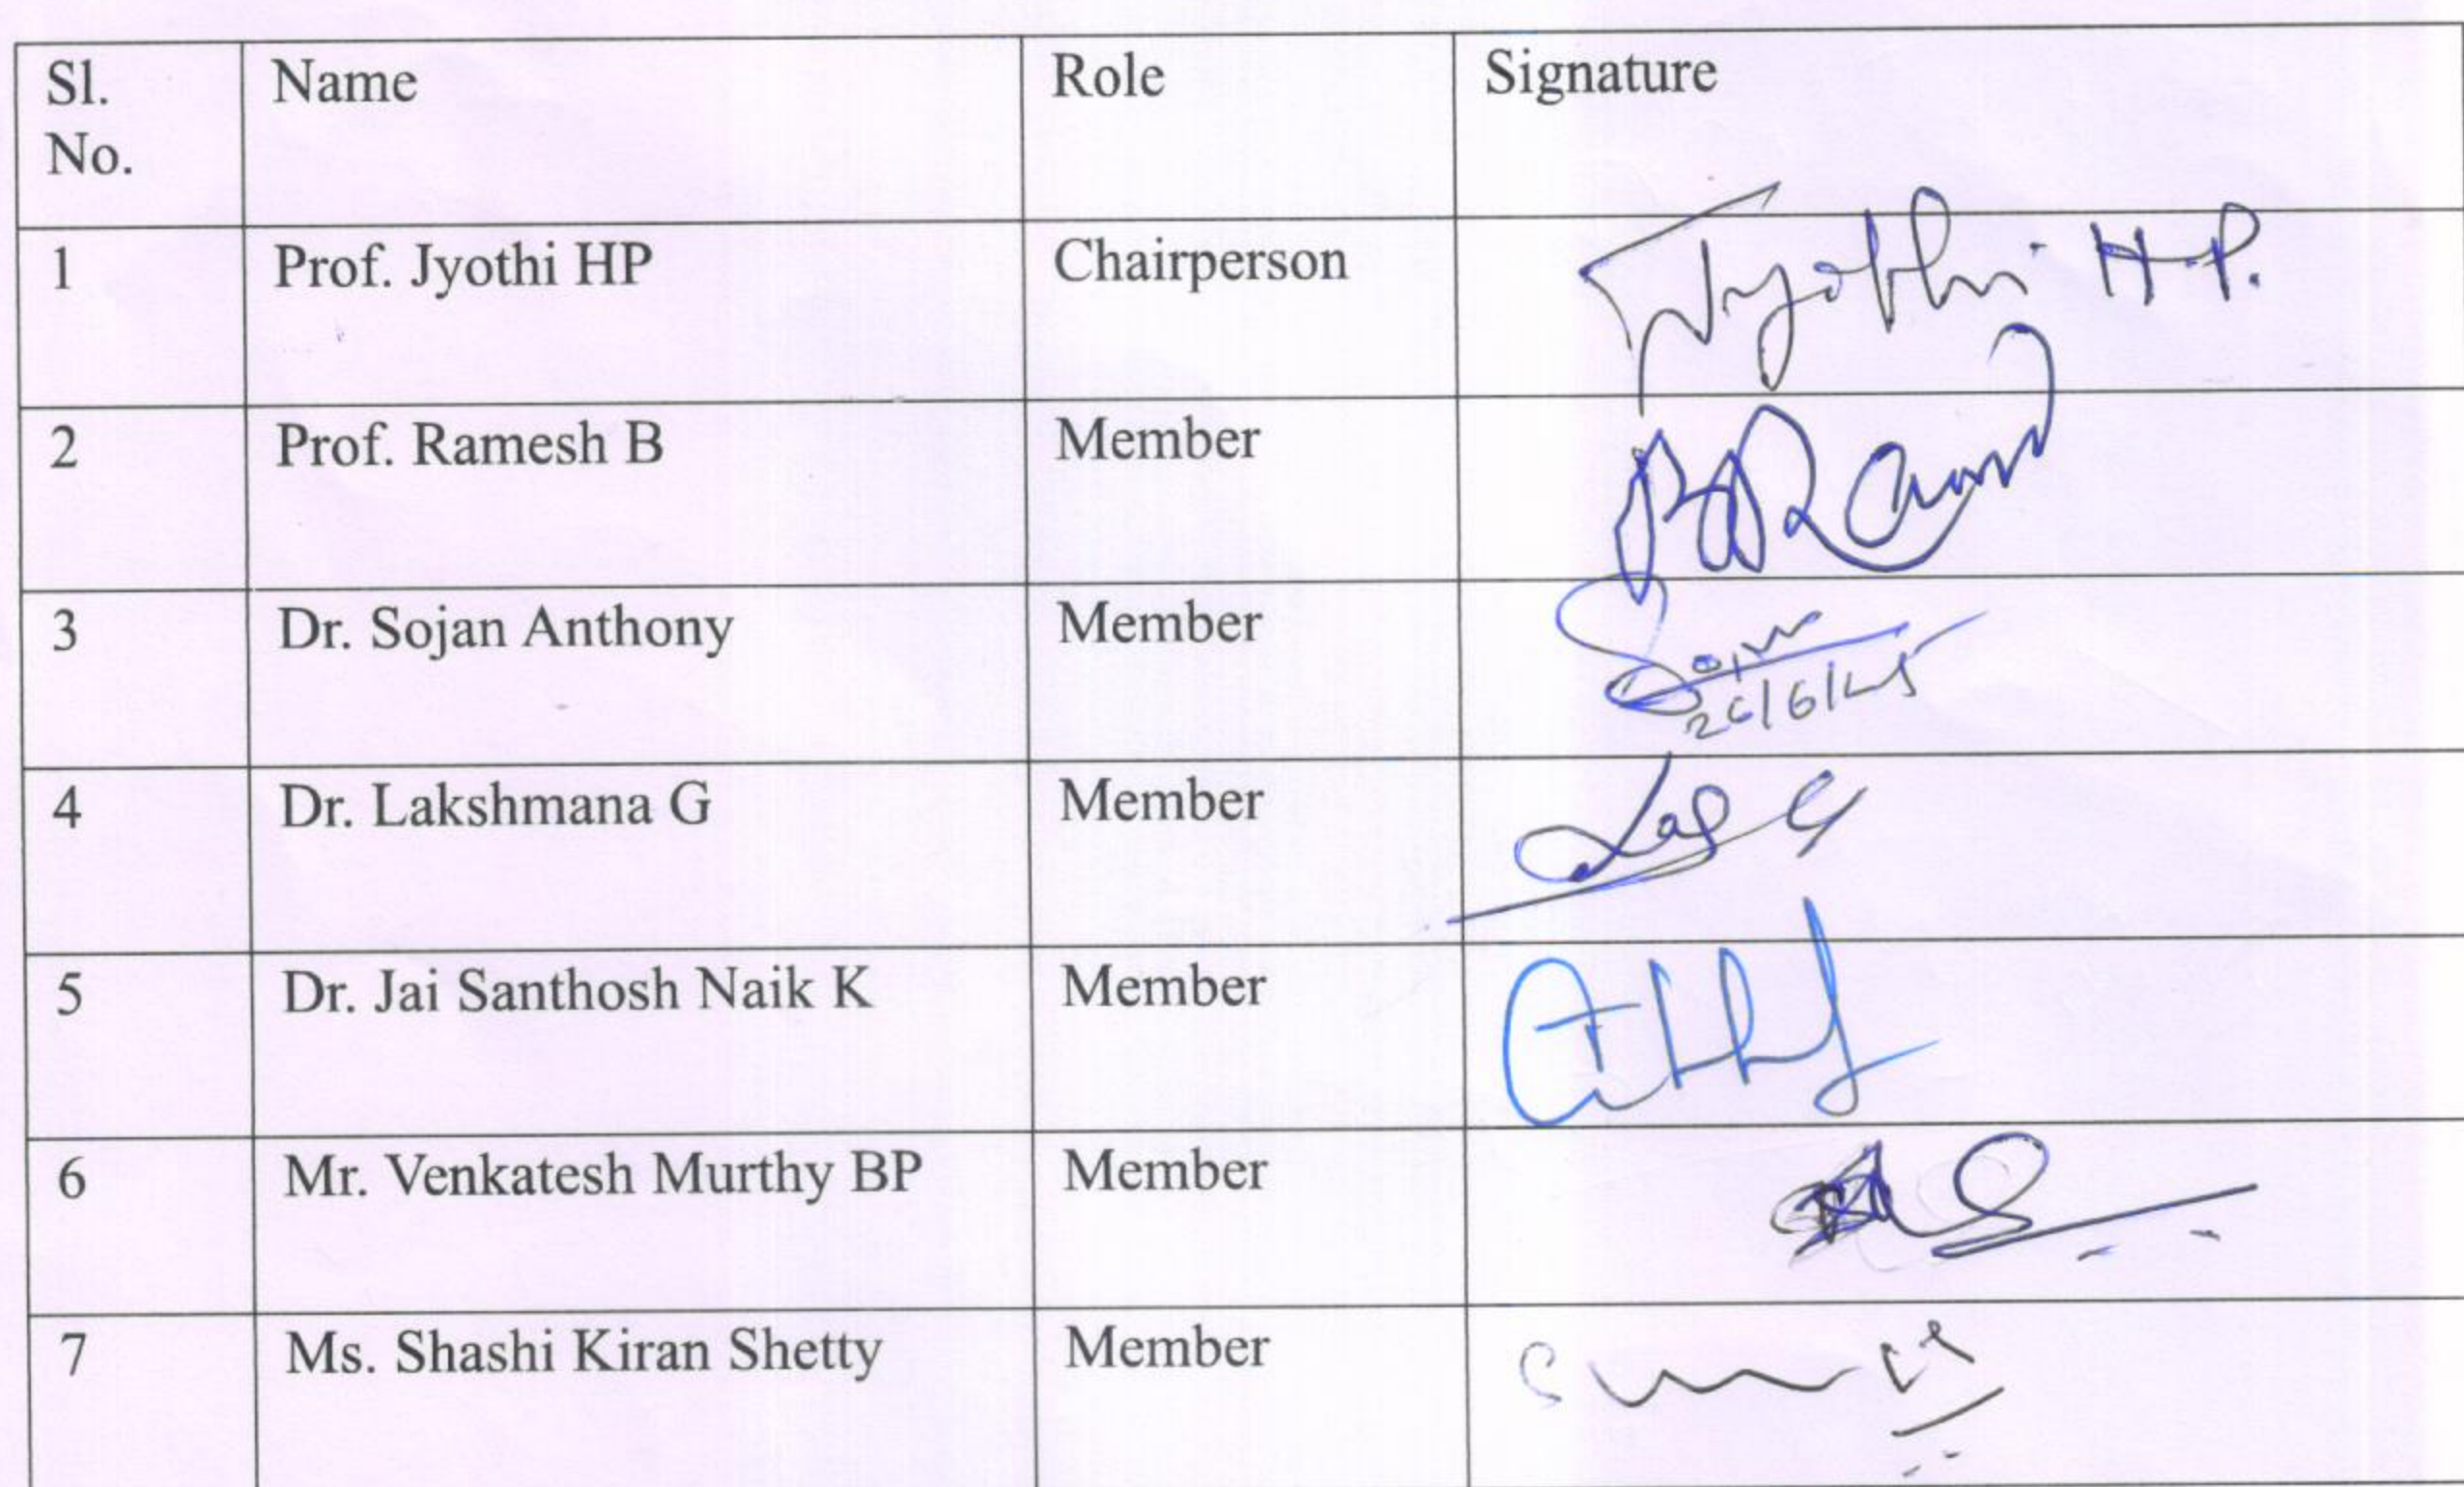 Sl. No. Name Role Signature
1 Prof. Jyothi HP Chairperson Jyothi H.P.
2 Prof. Ramesh B Member
3 Dr. Sojan Anthony Member
26/6/25
4 Dr. Lakshmana G Member
5 Dr. Jai Santhosh Naik K Member
6 Mr. Venkatesh Murthy BP Member
7 Ms. Shashi Kiran Shetty Member